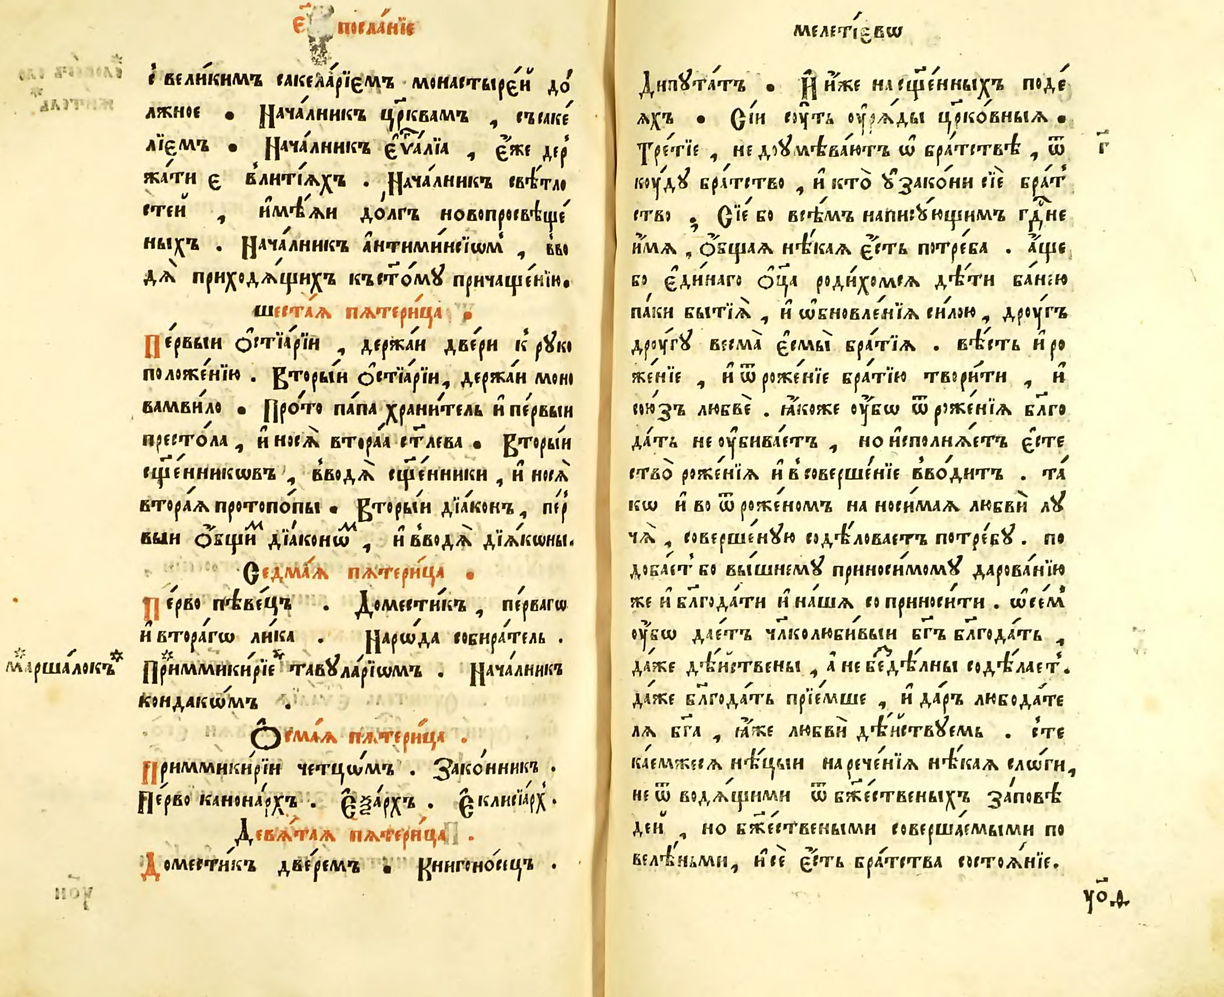 є҃ посла́нїе
с̾ вели́кимъ сакела́рїємъ монастыре́й до́
лжное • Нача́лникъ цр҃квамъ , съсаке́
лїемъ • Нача́лникъ єѵⷢ҇а́лїа , є҆́же дер
жа́ти є в̾лїтїѧхъ . Нача́лникъ свѣ́тло
стей , и҆мѣ́ѧи до́лгъ новопросвѣще́
ныхъ . Нача́лникъ а҆нтими́нсїѡм , вво
дѧ̀ приходѧ́щихъ къст҃о́мꙋ причаще́нїю.
шеста́ѧ пѧтери́ца •
Пе́рвыи ѻ҆стїа́рїи , держа́и две́ри к̾ рꙋко
положе́нїю . Вторы́и ѻ҆стїа́рїи, держа́и мано
вамви́ло • Про́то па́па храни́тель и҆ пе́рвыи
престо́ла , и҆ носѧ̀ втора́ѧ ст҃лева • Вторы́и
сщ҃е́нникѡвъ , в̾водѧ̀ сщ҃е́нники , и҆ носѧ̀
втора́ѧ протопо́пы • Вторы́и дїа́конъ , пе́р
выи ѻ҆́бщїи дїа́конѡм , и҆ в̾водѧ̀ дїѧ́кѡны.
Седма́ѧ пѧтери́ца •
Пе́рво пѣве́цъ . Доме́стикъ , пе́рвагѡ
и҆ втора́гѡ ли́ка . Нарѡ́да собира́тель .
маршало́къ* *Приммики́рїе* тавꙋла́рїѡмъ . Нача́лникъ
кондакѡ́мъ .
Ѻ҆сма́ѧ пѧтери́ца .
Приммики́рїи четцѡ́мъ . Зако́нникъ .
Пе́рво кана́рхъ . Є҆ѯа́рхъ . Є҆клисїа́рх .
Девѧ́таѧ пѧтери́ца .
Доме́стикъ две́ремъ • Книгоно́сецъ .
мелетїевѡ
Дипꙋта́тъ • И҆ и҆́же на сщ҃е́нныхъ поде́
ѧхъ • Сїи сꙋ́ть оу҆рѧ́ды цр҃ко́вныѧ •
Тре́тїе , не доꙋмѣва́ютъ ѡ҆ бра́тствѣ , ѿ г҃
кꙋ́дꙋ бра́тство , и҆ кто̀ оу҆зако́ни сїѐ бра́т
ство ; Сїе́ бо всѣ́мъ написꙋ́ющимъ гдⷭ҇не
и҆́мѧ , ѻ҆́бщаѧ нѣ́каѧ є҆́сть потре́ба . а҆́ще
бо є҆ди́наго ѻ҆ц҃а роди́хомсѧ дѣ́ти ба́нею
па́ки бытїѧ̀ , и҆ ѡ҆бновле́нїѧ си́лою , дрꙋ́гъ
дрꙋ́гꙋ весма̀ є҆смы̀ бра́тїѧ . вѣ́сть и҆ ро
же́нїе , и҆ ѿ роже́нїе бра́тїю твори́ти , и҆
сою́зъ любвѐ . ꙗ҆́коже оу҆́бѡ ѿ роже́нїѧ бл҃го
да́ть не оу҆бива́етъ , но и҆сполнѧ́етъ є҆сте
ство̀ роже́нїѧ и҆ в̾ соверше́нїе в̾во́дитъ . та́
кѡ и҆ во ѿ роже́номъ на носи́маѧ любвѝ лꙋ
чѧ̀ , соверше́нꙋю содѣ́ловаетъ потре́бꙋ . по
доба́ет бо вы́шнемꙋ приноси́момꙋ дарова́нїю
же и҆ бл҃года́ти и҆ на́шѧ со приноси́ти . ѡ҆ се́м
оу҆́бѡ дае́тъ чл҃колюби́выи бг҃ъ бл҃года́ть ,
да́же дѣ́йствены , а҆ не бездѣ́лны содѣ́лает.
да́же бл҃года́ть прїе́мше , и҆ да́ръ любода́те
лѧ бг҃а , ꙗ҆́же любвѝ дѣ́йствꙋемь . сте
ка́емжесѧ нѣ́цыи нарече́нїѧ нѣ́каѧ слѡ́ги,
не ѿ водѧ́щими ѿ бж҃е́ственыхъ за́повѣ
дей , но бж҃е́ствеными соверша́емыми по
велѣ́ньми, и҆ сѐ є҆́сть бра́тства состоѧ́нїе.